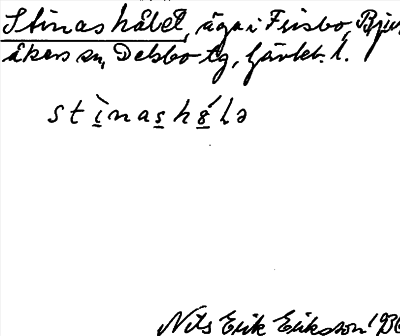 Stinashålet, äga i Frisbo, Bjur
åkers sn, Delsbo tg, Gävleb. l.
stìnashǻlə
Nils Erik Eriksson 193